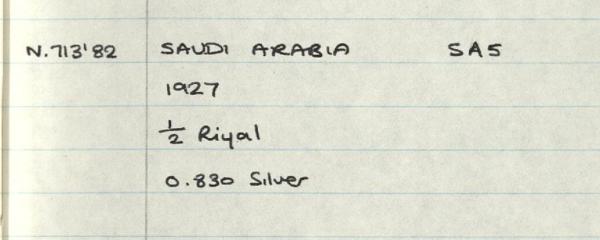 N.713'82 SAUDI ARABIA SA5
1927
½ Riyal
0.830 Silver